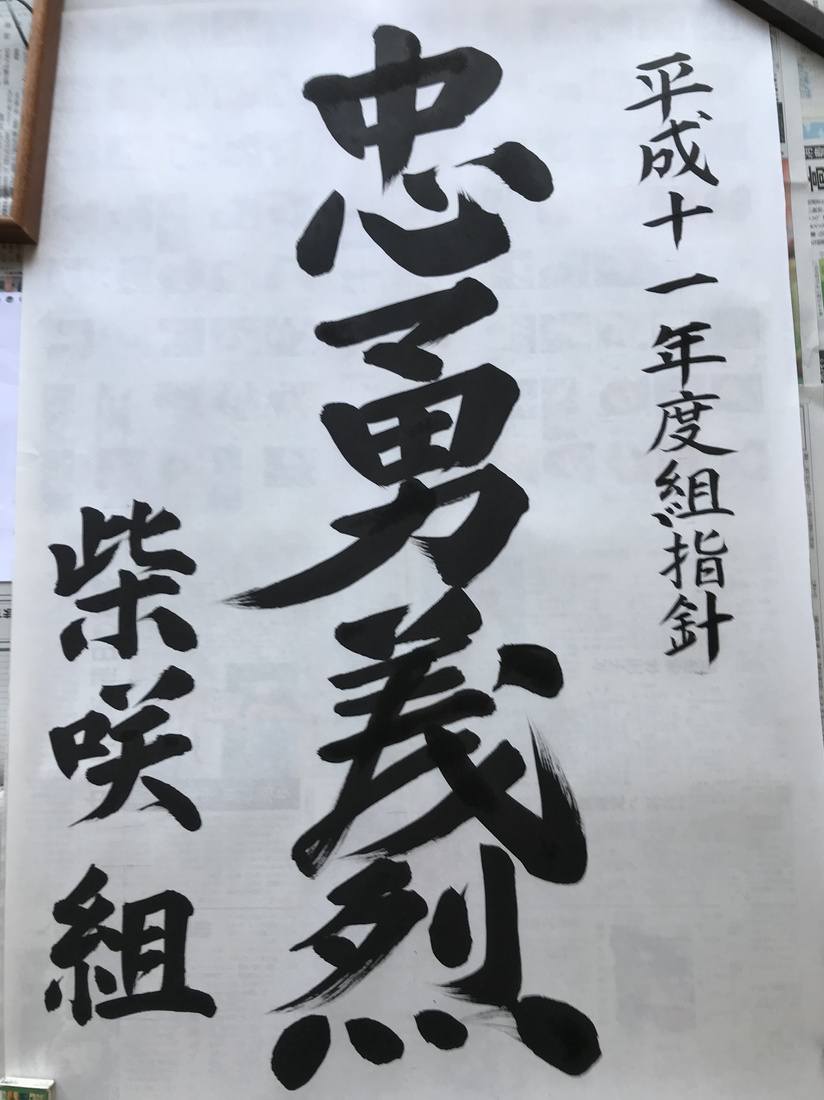 平成十一年度組指針
忠勇義烈
柴咲組